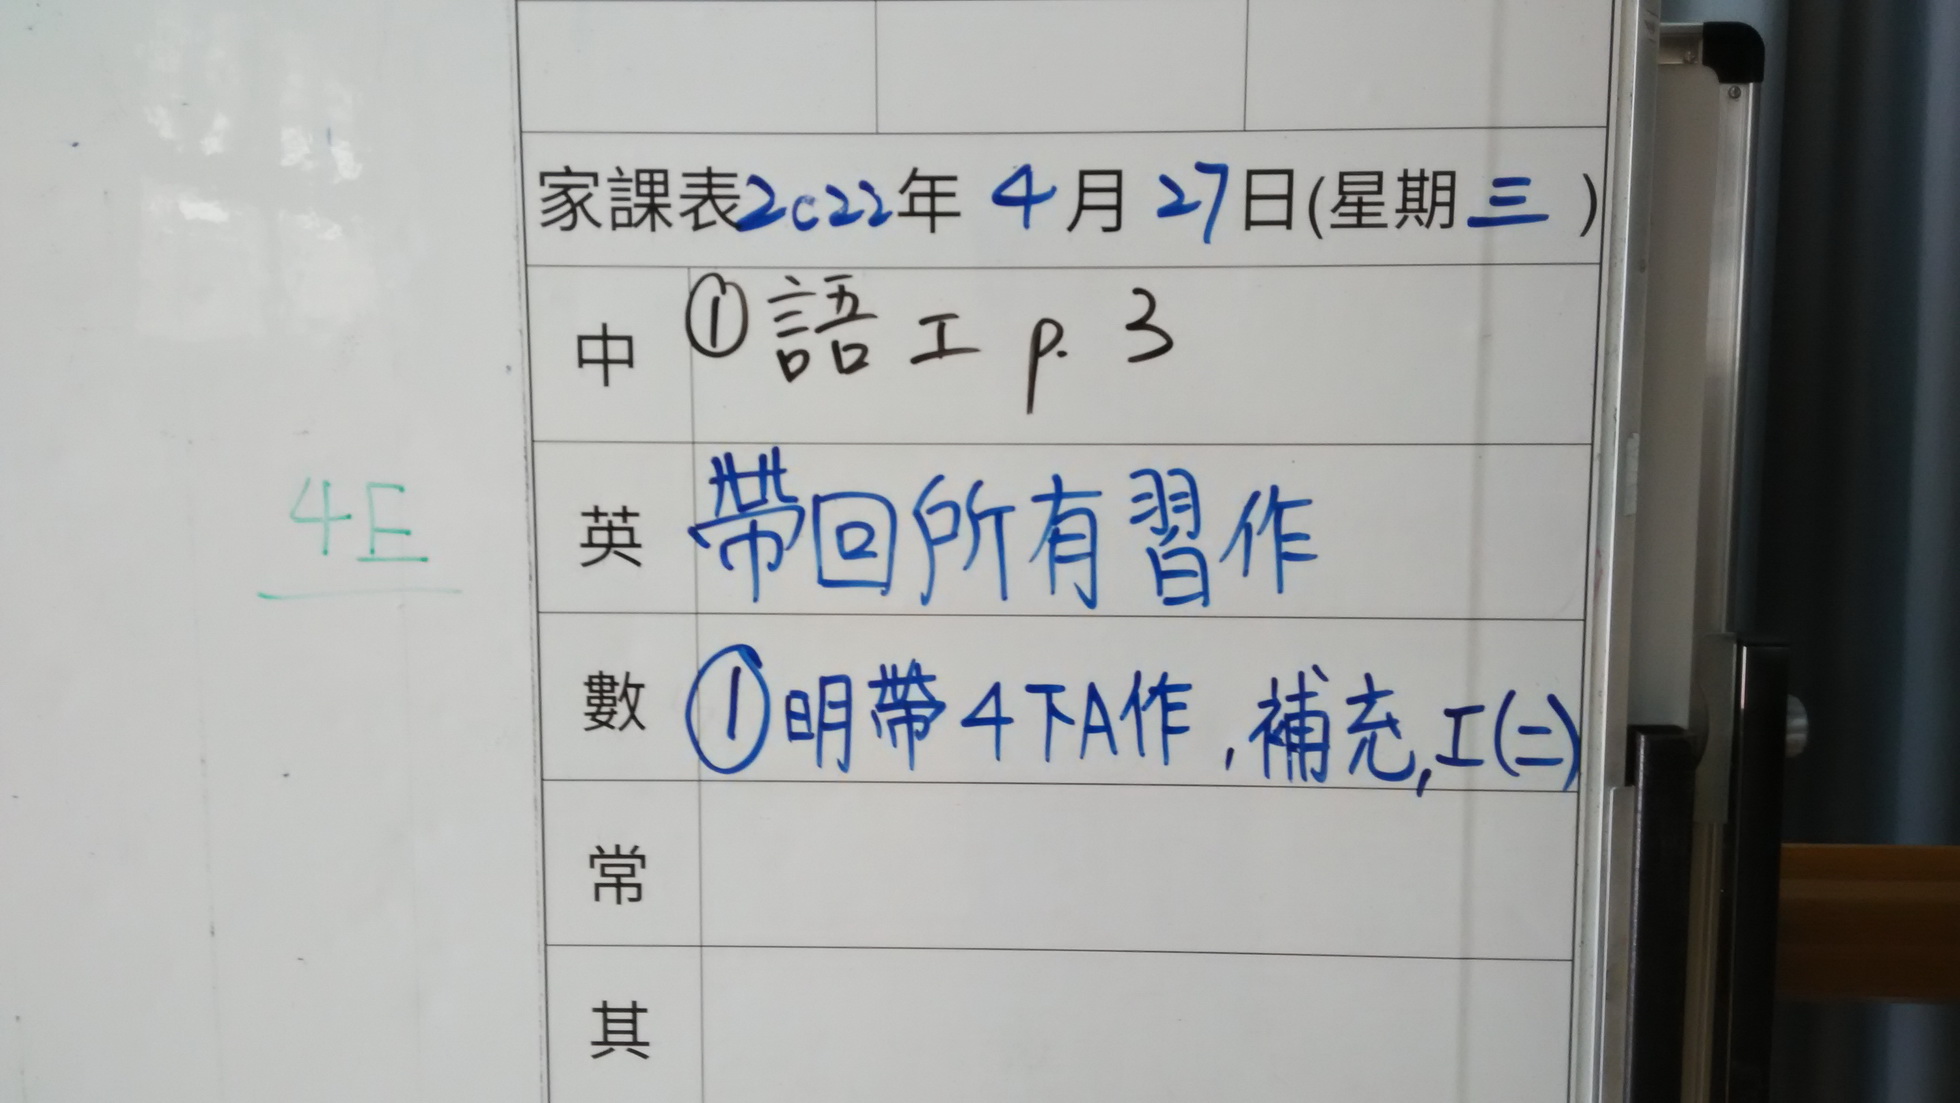 家課表2022年 4月 27日(星期三)
中 ①語工 p. 3
4E
英 帶回所有習作
數 ①明帶4下A作,補充,工(二)
常
其